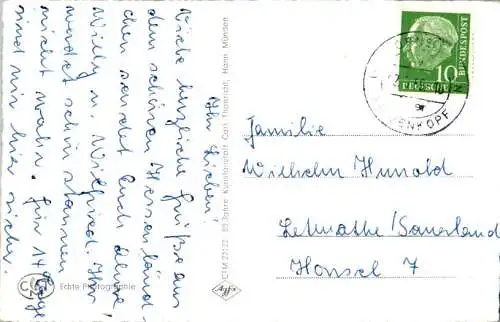 Ihr Lieben!
Viele herzliche Grüße aus
dem schönen Hessenländ-
chen sendet Euch
Willy u. Wilfried. Ihr
werdet schön staunen
nicht wahr. Für 14 Tage
sind wir hier sicher.
Familie
Wilhelm Hunold
Letmathe / Sauerland
Honsel 7
DEUTSCHE BUNDESPOST
10
PFENNIG
Echte Photographie
85 Jahre Kunstanstalt Carl Thoericht, Hann. Münden
Agfa